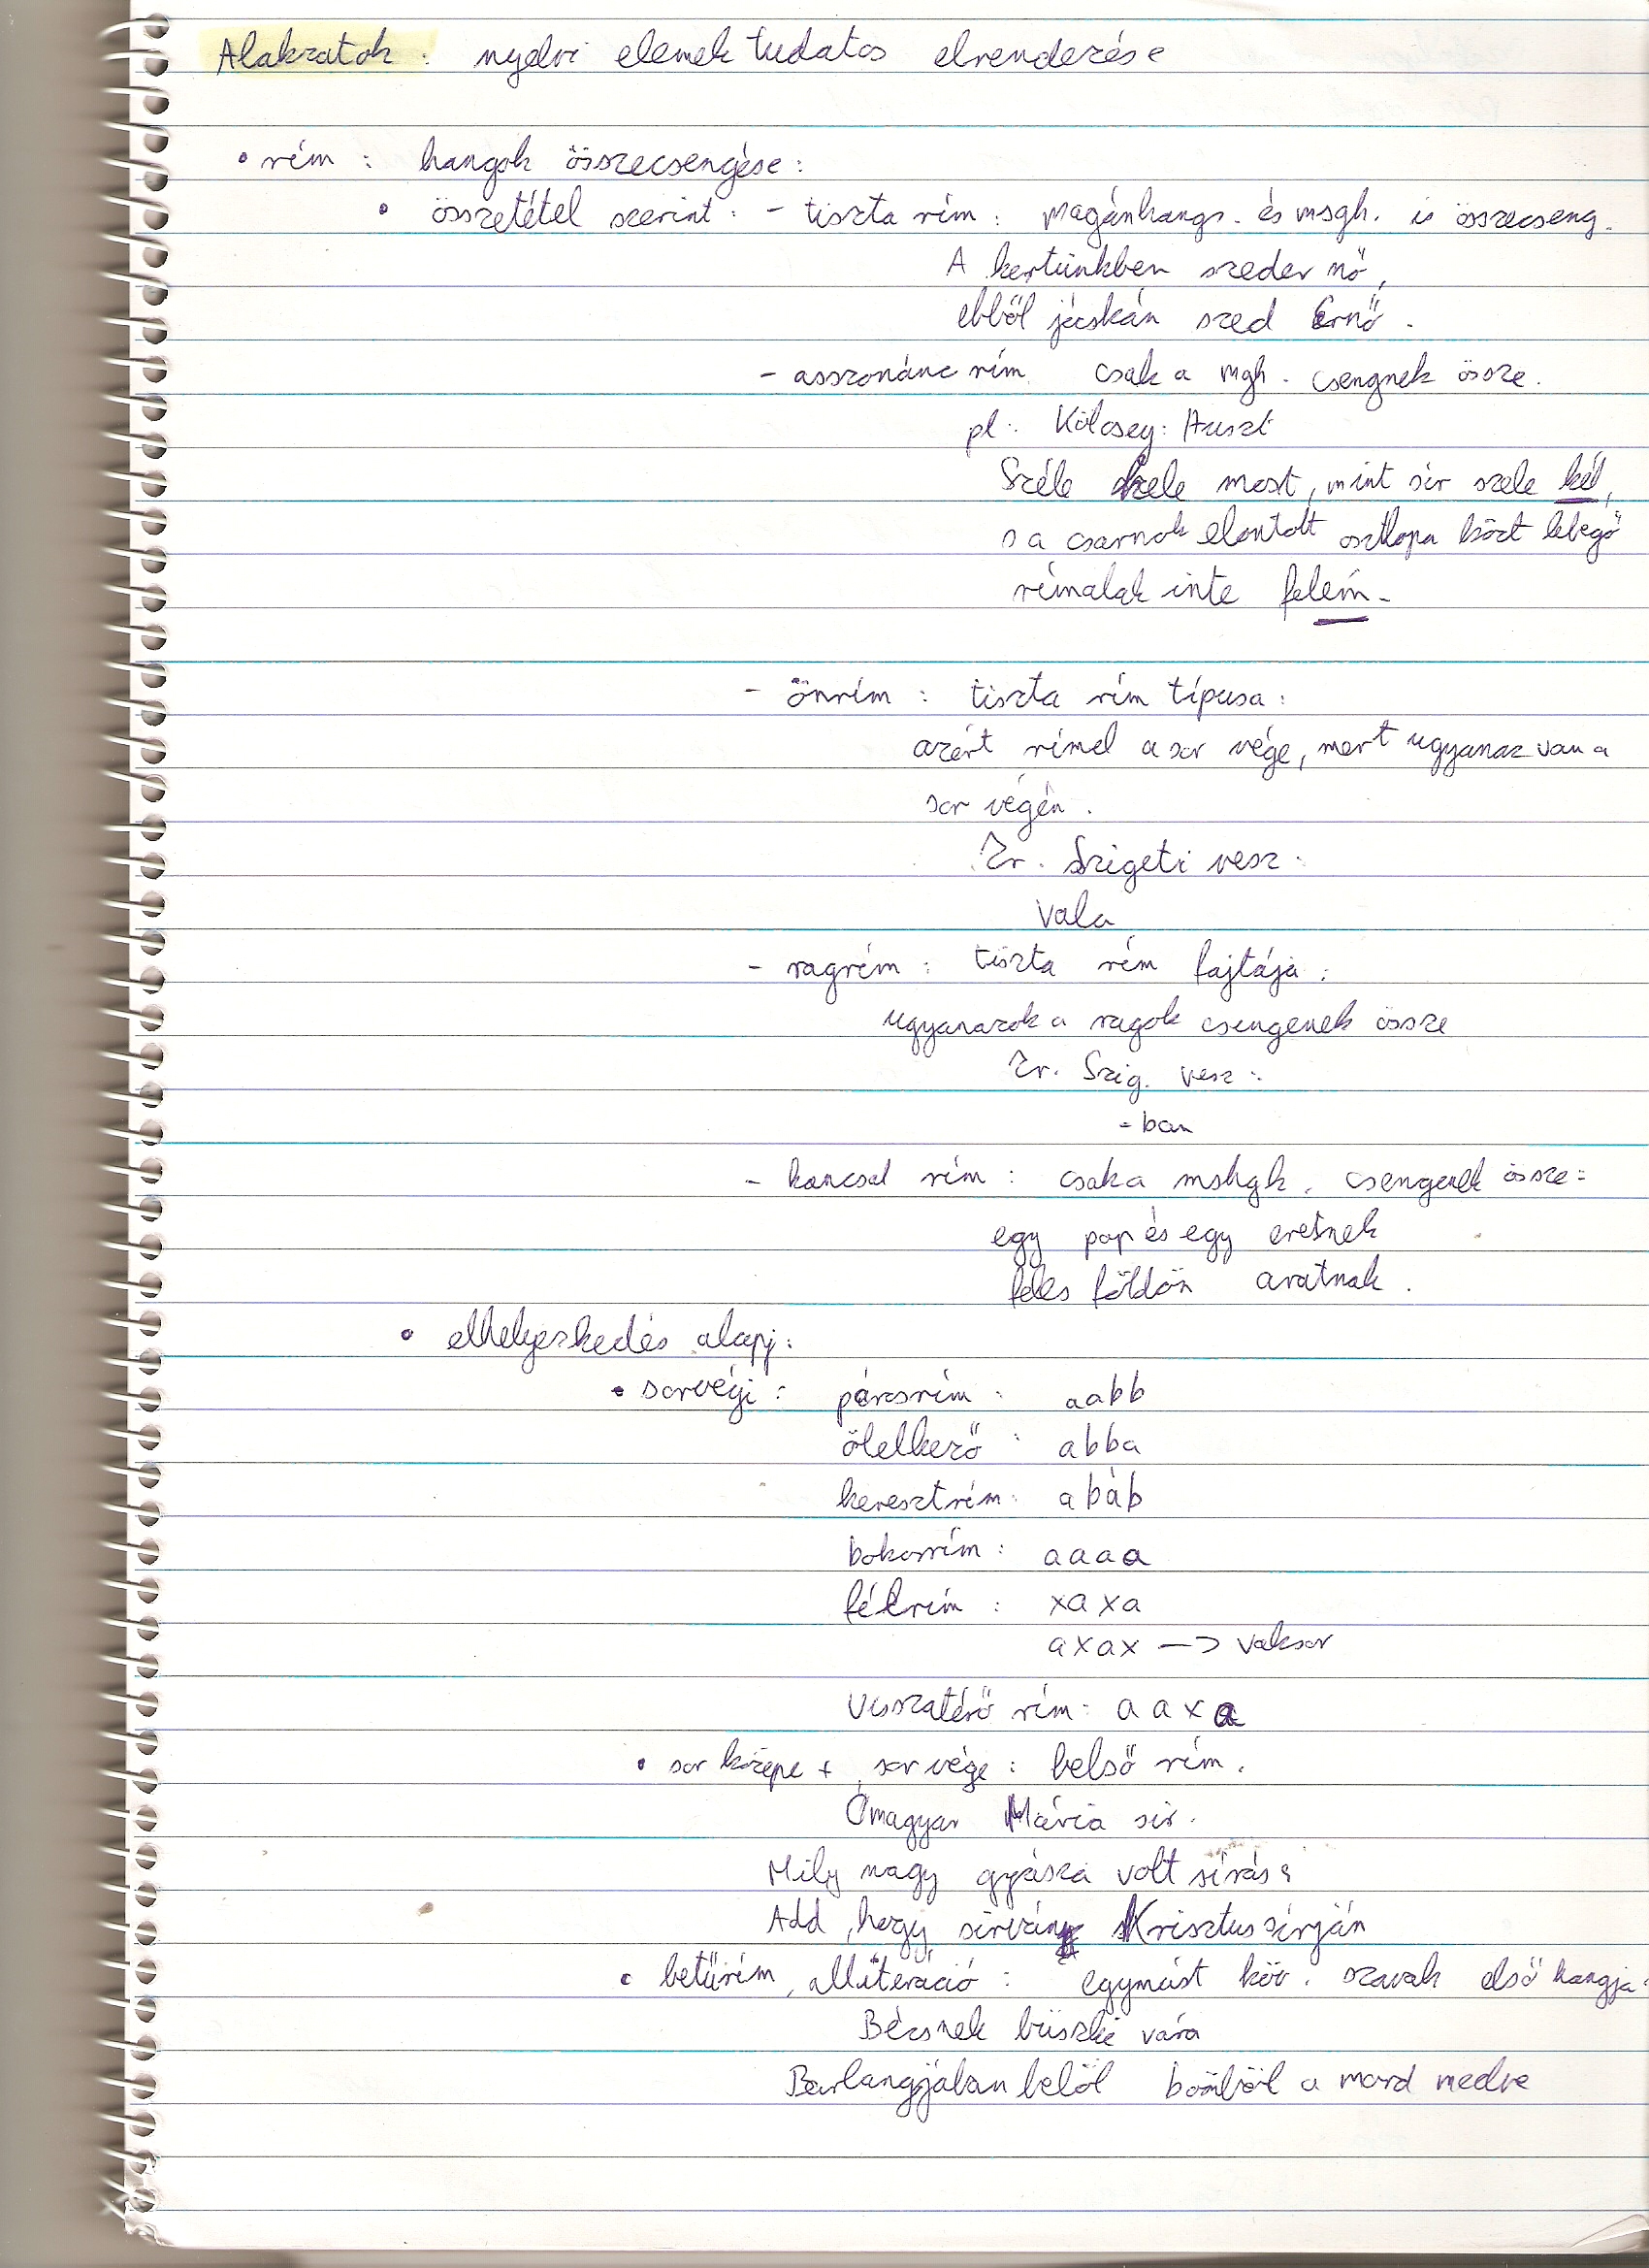 Alakzatok : nyelvi elemek tudatos elrendezése
• rím : hangok összecsengése :
• összetétel szerint : - tiszta rím : magánhangz. és msgh. is összecseng.
A kertünkben szeder nő,
ebből jócskán szed Ernő.
- asszonánc rím csak a mgh. csengnek össze.
pl.: Kölcsey: Huszt
Széle szele most, mint sír szele kél,
s a csarnok elontott oszlopa közt lebegő
rémalak inte felém.
- önrím : tiszta rím típusa :
azért rímel a sor vége, mert ugyanaz van a
sor végén.
Zr. Szigeti vesz.
vala
- ragrím : tiszta rím fajtája :
ugyanazok a ragok csengenek össze
Zr. Szig. vesz :
-ban
- kancsal rím : csak a mshgk. csengenek össze :
egy pap és egy eretnek
feles földön aratnak.
• elhelyezkedés alapj :
• sorvégi : párosrím : aabb
ölelkező : abba
keresztrím : abab
bokorrím : aaaa
félrím : xaxa
axax —> vaksor
visszatérő rím : a a x a
• sor közepe + sor vége : belső rím.
Ómagyar Mária sir.
Mily nagy gyásza volt sírása
Add, hogy sírván Krisztus sírján
• betűrím, alliteráció : egymást köv. szavak első hangja :
Bécsnek büszke vára
Barlangjában belöl bömböl a mord medve